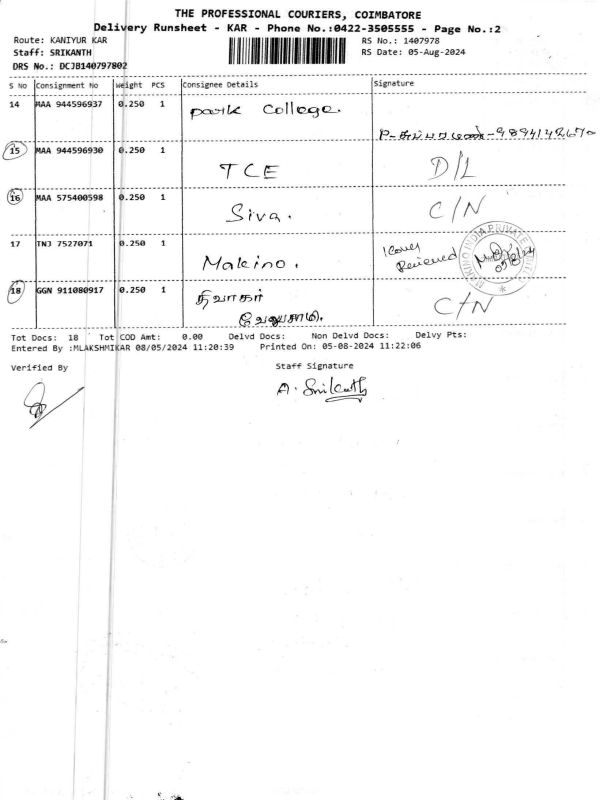 THE PROFESSIONAL COURIERS, COIMBATORE
Delivery Runsheet - KAR - Phone No.:0422-3505555 - Page No.:2
Route: KANIYUR KAR
RS No.: 1407978
Staff: SRIKANTH
RS Date: 05-Aug-2024
DRS No.: DCJB140797802
S No Consignment No Weight PCS Consignee Details Signature
14 MAA 944596937 0.250 1 park college.
15 MAA 944596930 0.250 1 TCE D/L
16 MAA 575400598 0.250 1 Siva. C/N
17 TNJ 7527071 0.250 1 Makino. 1cover Received
18 GGN 911080917 0.250 1 திவாகர் வேலுசாமி. C/N
Tot Docs: 18 Tot COD Amt: 0.00 Delvd Docs: Non Delvd Docs: Delvy Pts:
Entered By :MLAKSHMIKAR 08/05/2024 11:20:39 Printed On: 05-08-2024 11:22:06
Verified By Staff Signature
A. Srikanth